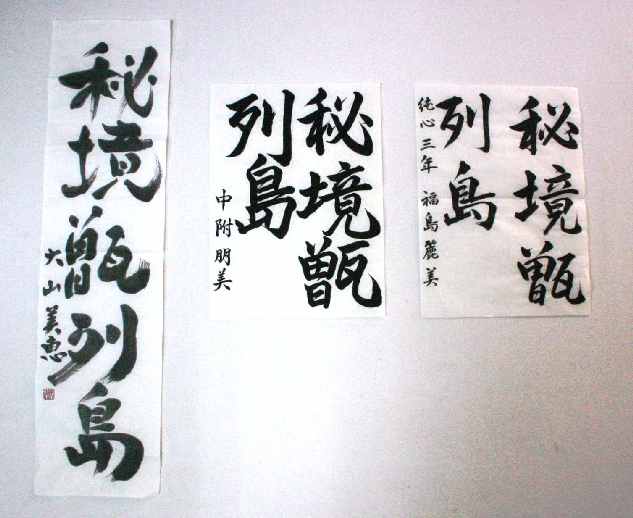 秘境甑列島
大山美恵
秘境甑
列島
中附朋美
秘境甑
列島
純心三年 福島麗美